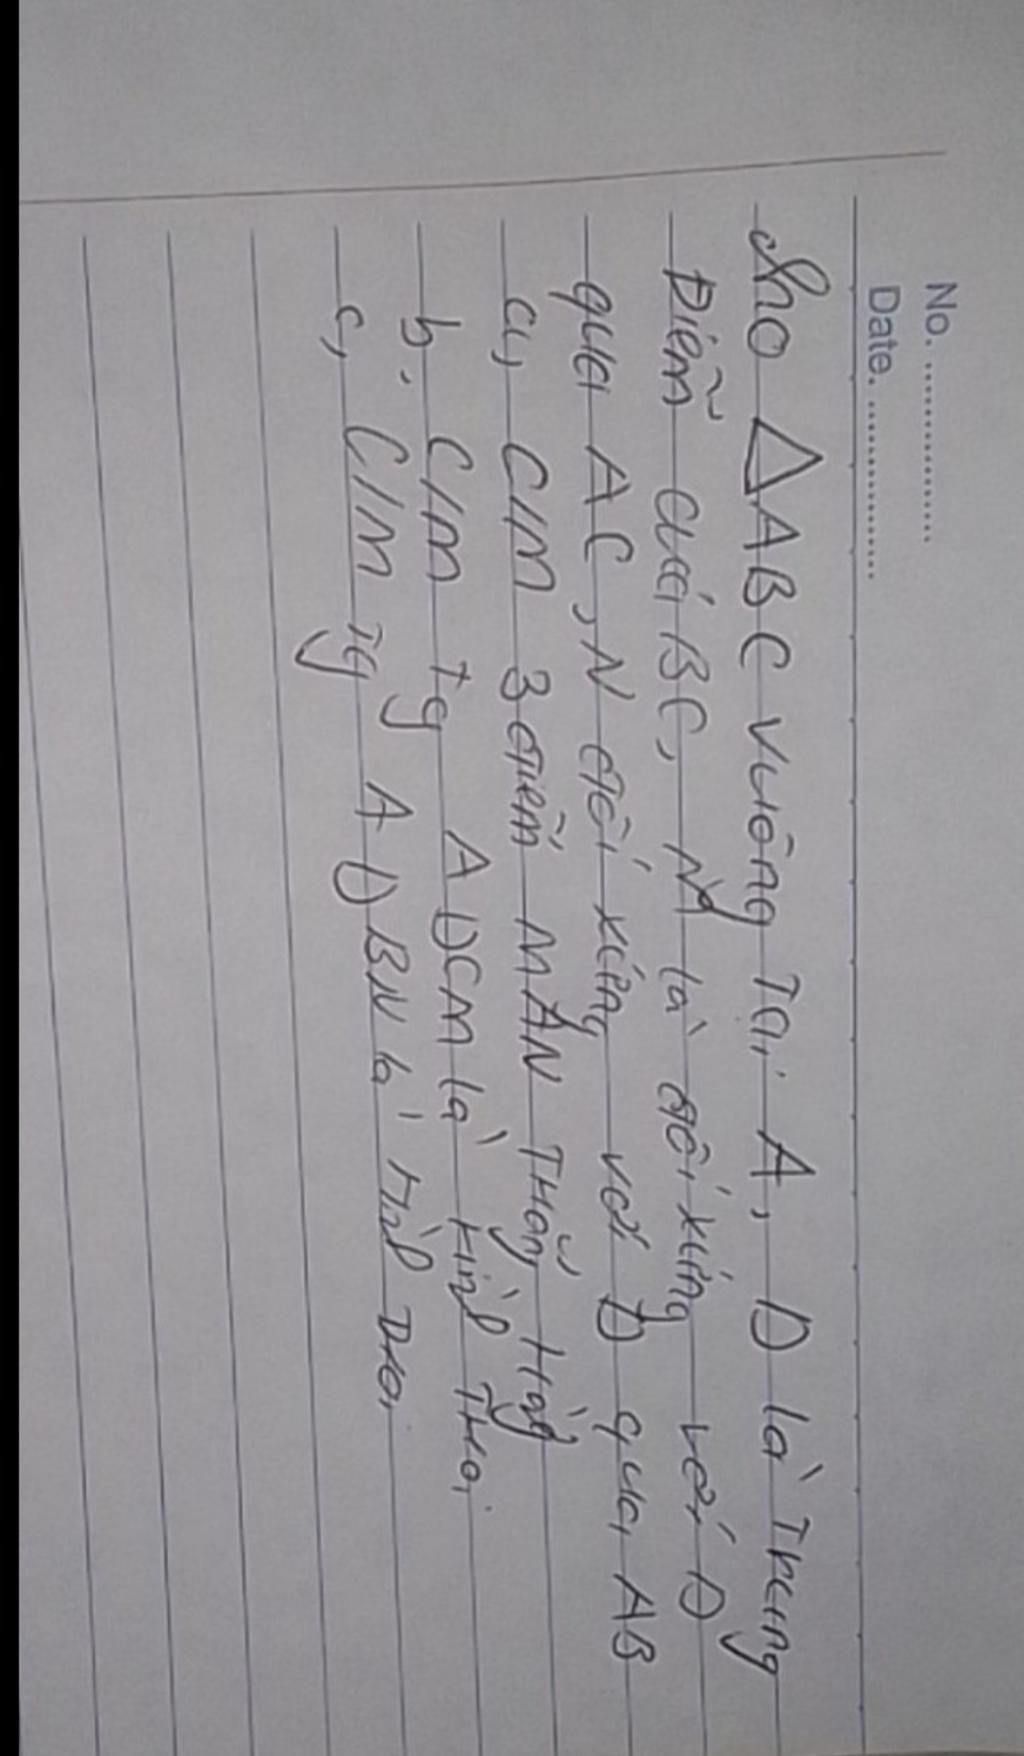 No. ................
Date. ................
Cho △ABC vuông Tại A, D là Trung
Điểm của BC, M là đối xứng với D
qua AC, N đối xứng với D qua AB
a, C/M 3 điểm MAN Thẳng Hàg
b. C/m tg ADCM là Hình Thoi
c, C/m Tg ADBN là Hình Thoi